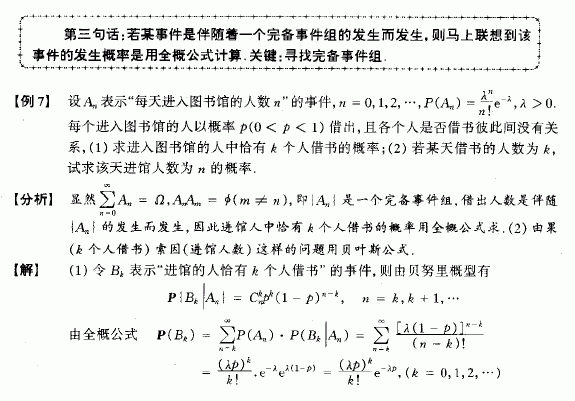 第三句话:若某事件是伴随着一个完备事件组的发生而发生,则马上联想到该
事件的发生概率是用全概公式计算.关键:寻找完备事件组.
【例7】 设Aₙ表示“每天进入图书馆的人数n”的事件,n = 0,1,2,⋯,P(Aₙ) = λⁿ/n! e^{-λ},λ > 0.
每个进入图书馆的人以概率 p(0 < p < 1) 借出,且各个人是否借书彼此间没有关
系,(1) 求进入图书馆的人中恰有 k 个人借书的概率;(2) 若某天借书的人数为 k,
试求该天进馆人数为 n 的概率.
【分析】 显然 ∑_{n=0}^{∞} Aₙ = Ω,AₙAₘ = ϕ(m ≠ n),即{Aₙ}是一个完备事件组,借出人数是伴随
{Aₙ}的发生而发生,因此进馆人中恰有 k 个人借书的概率用全概公式求.(2) 由果
(k 个人借书) 索因(进馆人数) 这样的问题用贝叶斯公式.
【解】 (1) 令 Bₖ 表示“进馆的人恰有 k 个人借书”的事件,则由贝努里概型有
P{Bₖ|Aₙ} = Cₙᵏpᵏ(1 − p)ⁿ⁻ᵏ, n = k,k + 1,⋯
由全概公式 P(Bₖ) = ∑_{n=k}^{∞} P(Aₙ)·P(Bₖ|Aₙ) = ∑_{n=k}^{∞} [λ(1 − p)]ⁿ⁻ᵏ/(n − k)!
= (λp)ᵏ/k! . e^{-λ}e^{λ(1-p)} = (λp)ᵏ/k! e^{-λp},(k = 0,1,2,⋯)